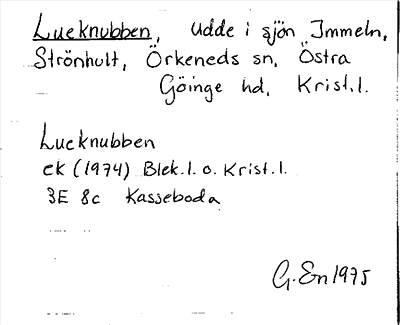 Lueknubben, udde i sjön Immeln,
Strönhult, Örkeneds sn, Östra
Göinge hd, Krist.l.
Lueknubben
ek (1974) Blek.l. o. Krist.l.
3E 8c Kasseboda
G. En 1975